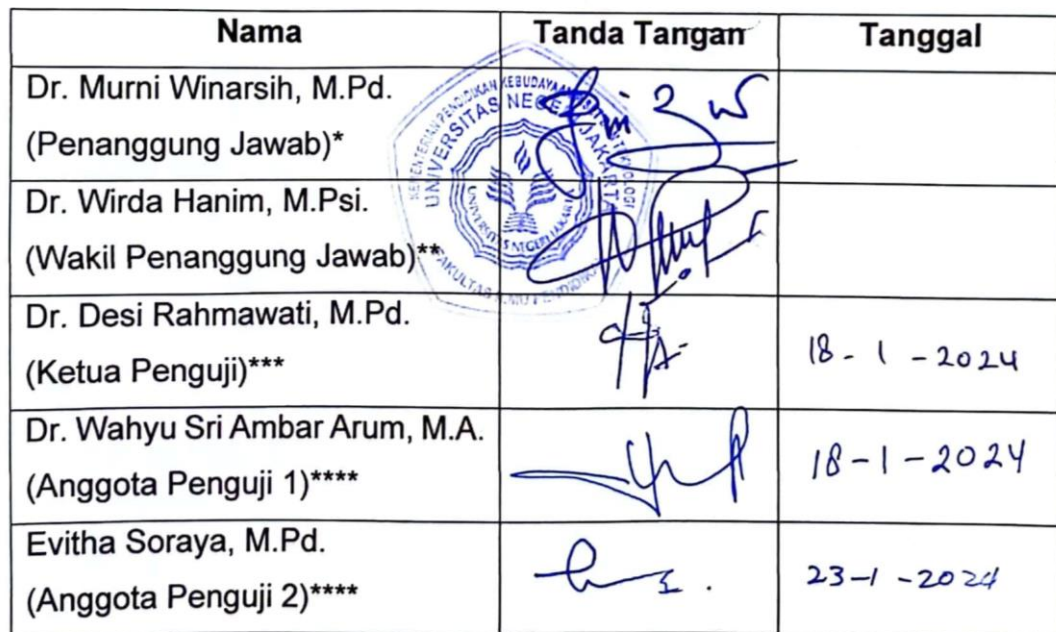 Nama Tanda Tangan Tanggal
Dr. Murni Winarsih, M.Pd.
(Penanggung Jawab)*
Dr. Wirda Hanim, M.Psi.
(Wakil Penanggung Jawab)**
Dr. Desi Rahmawati, M.Pd.
(Ketua Penguji)*** 18 - 1 - 2024
Dr. Wahyu Sri Ambar Arum, M.A.
(Anggota Penguji 1)**** 18-1-2024
Evitha Soraya, M.Pd.
(Anggota Penguji 2)**** 23-1-2024
UNIVERSITAS NEGERI JAKARTA
UNIVERSITAS NEGERI JAKARTA
FAKULTAS ILMU PENDIDIKAN